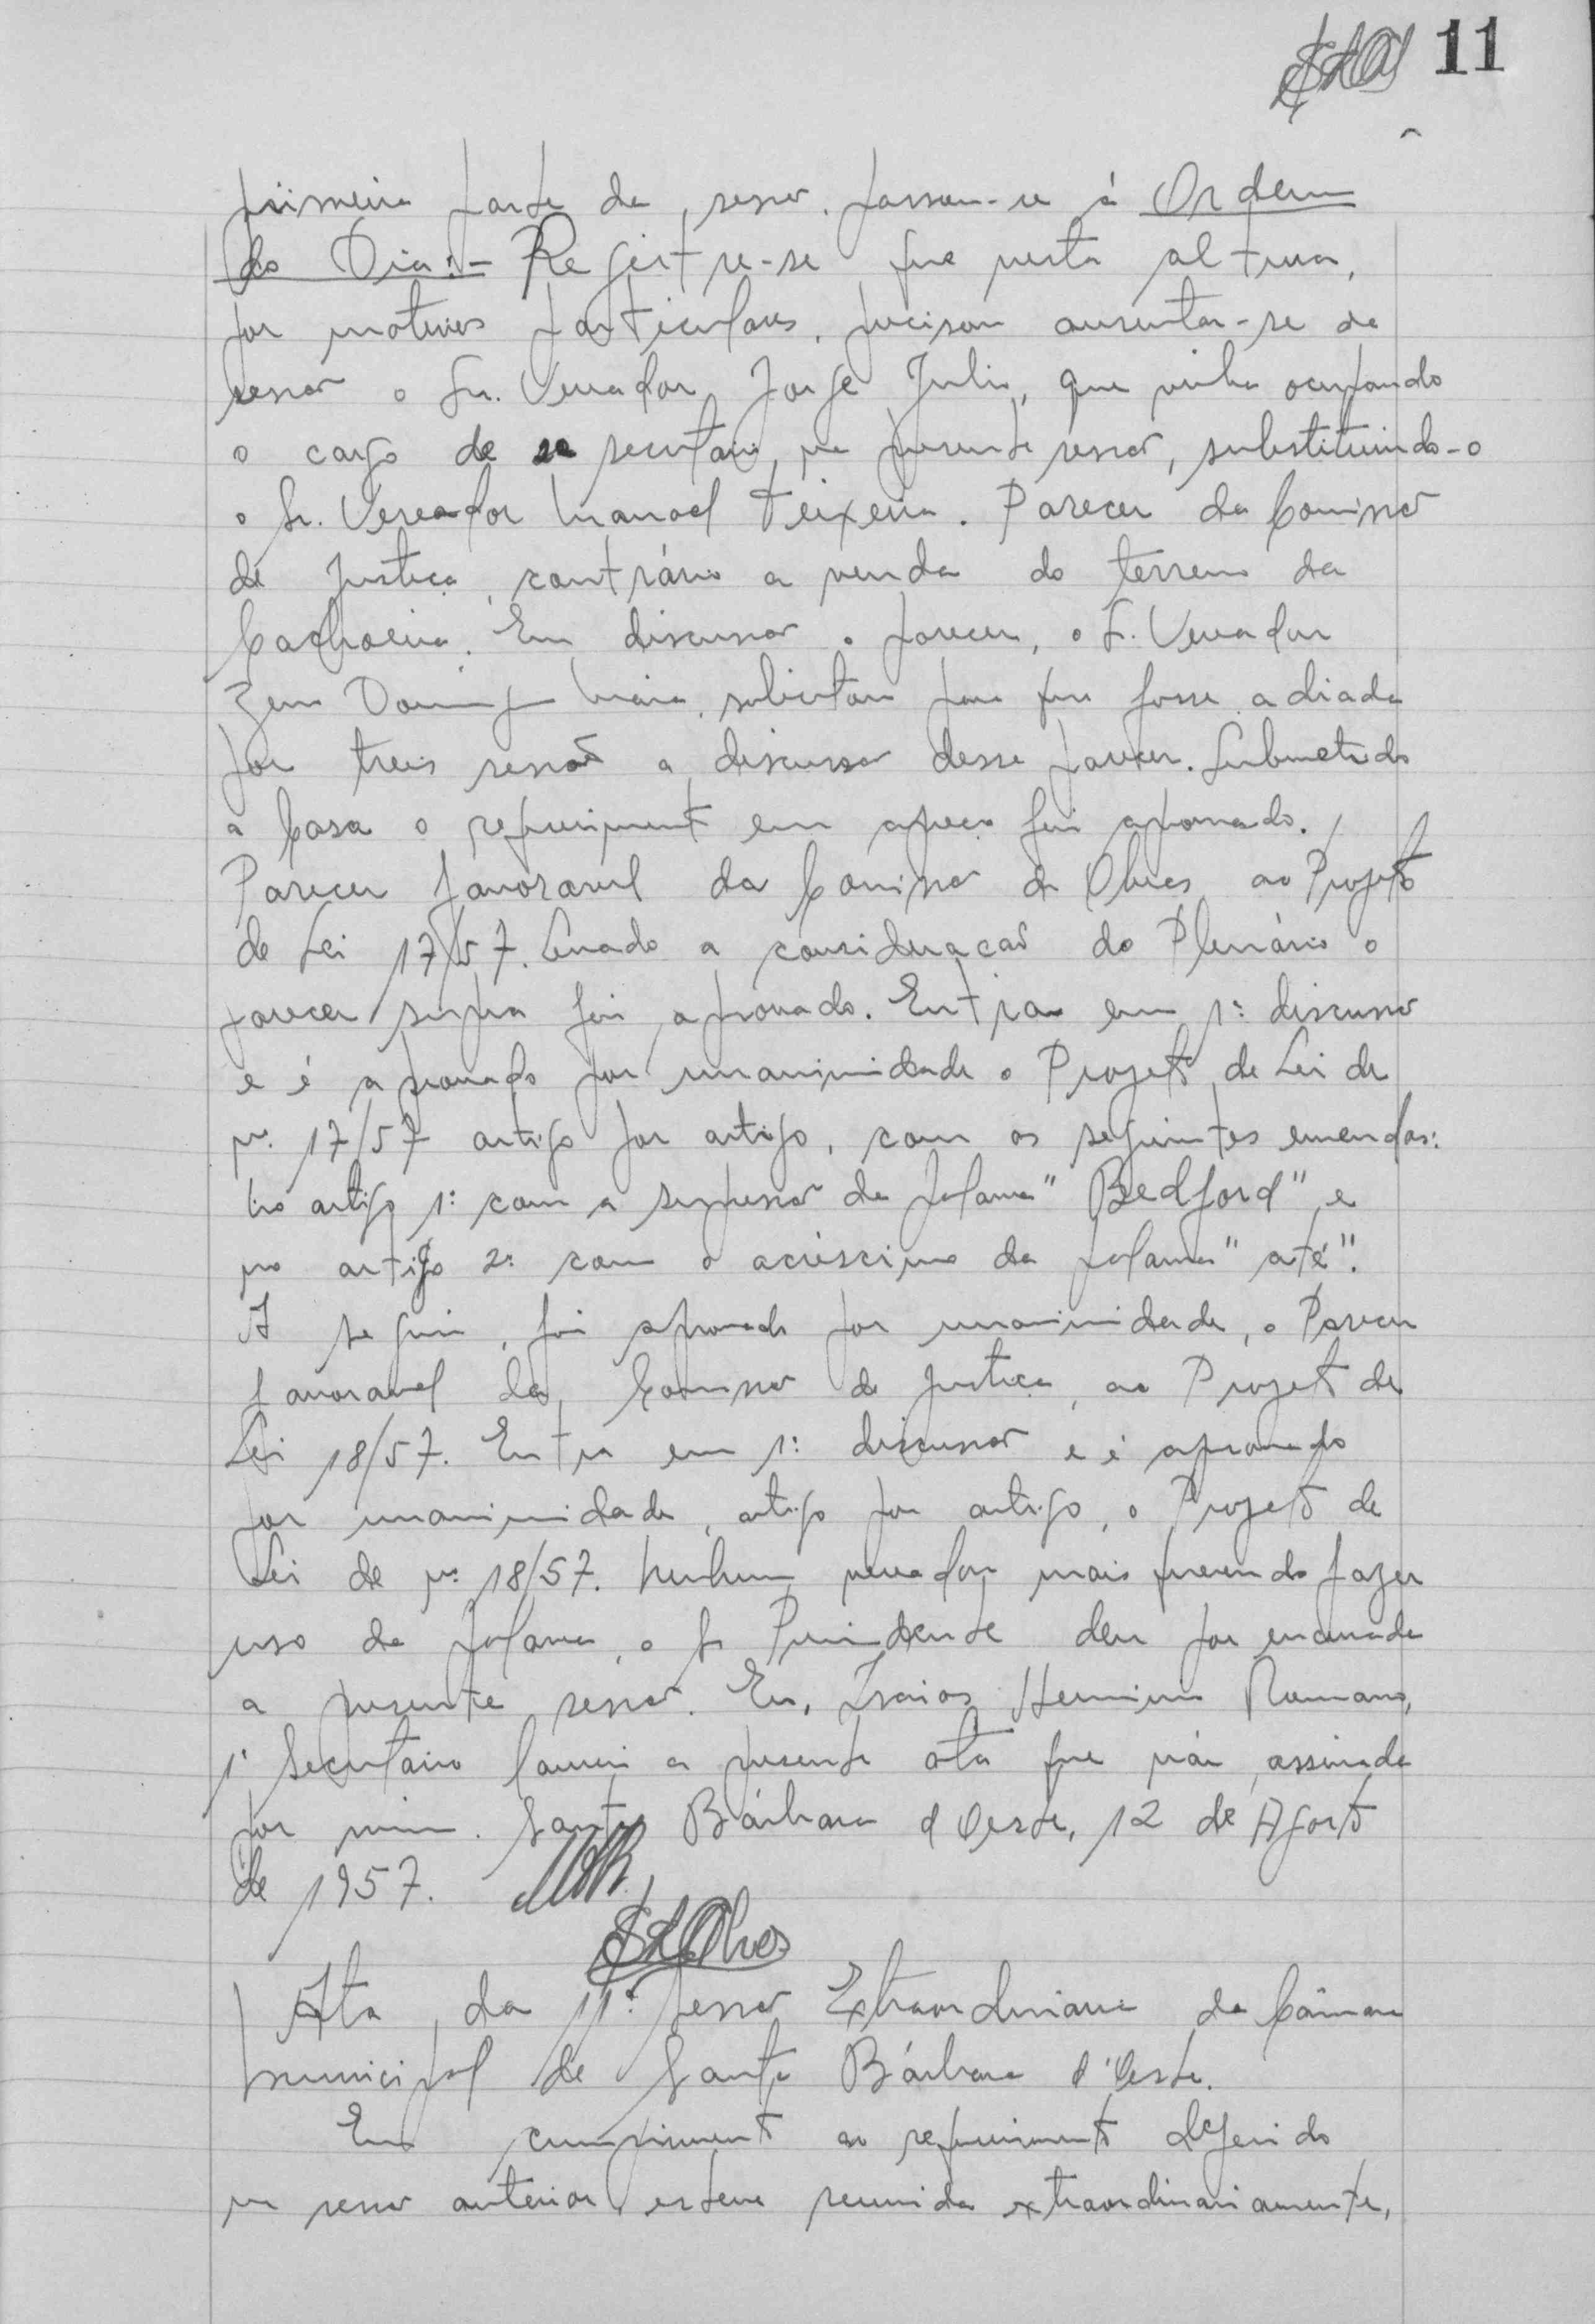 11
primeira parte da sessão. passou-se á Ordem
do Dia:- Registre-se que nesta altura,
por motivos particulares, precisou ausentar-se da
sessão o Sr. Vereador Jorge Julio, que vinha ocupando
o cargo de 2º secretario, na presente sessão, substituindo-o
o Sr. Vereador Manoel Teixeira. Parecer da Comissão
de Justiça, contrário a venda do terreno da
Cachoeira. Em discussão o parecer, o Sr. Vereador
Domingos Maia, solicitou para que fosse adiada
por treis sessões a discussão desse parecer. Submetido
a Casa o requerimento em apreço foi aprovado.
Parecer favoravel da Comissão de Obras ao Projeto
de Lei 17/57. Levado a consideração do Plenário o
parecer supra foi aprovado. Entra em 1ª discussão
e é aprovado por unanimidade o Projeto de Lei de
nº 17/57 artigo por artigo, com as seguintes emendas:
No artigo 1º com a supressão da palavra "Bedford" e
no artigo 2º com o acréscimo da palavra "até".
A seguir, foi aprovado por unanimidade, o Parecer
favoravel da Comissão de Justiça, ao Projeto de
Lei 18/57. Entra em 1ª discussão e é aprovado
por unanimidade, artigo por artigo, o Projeto de
Lei de nº 18/57. Nenhum vereador mais querendo fazer
uso da palavra, o Sr Presidente deu por encerrada
a presente sessão. Eu, Isaias Herminio Romano,
1º Secretario lavrei a presente ata que vai assinada
por mim. Santa Bárbara d'Oeste, 12 de Agosto
de 1957.
Ata da 11ª Sessão Extraordinaria da Câmara
Municipal de Santa Bárbara d'Oeste.
Em cumprimento ao requerimento deferido
na sessão anterior, esteve reunida extraordinariamente,